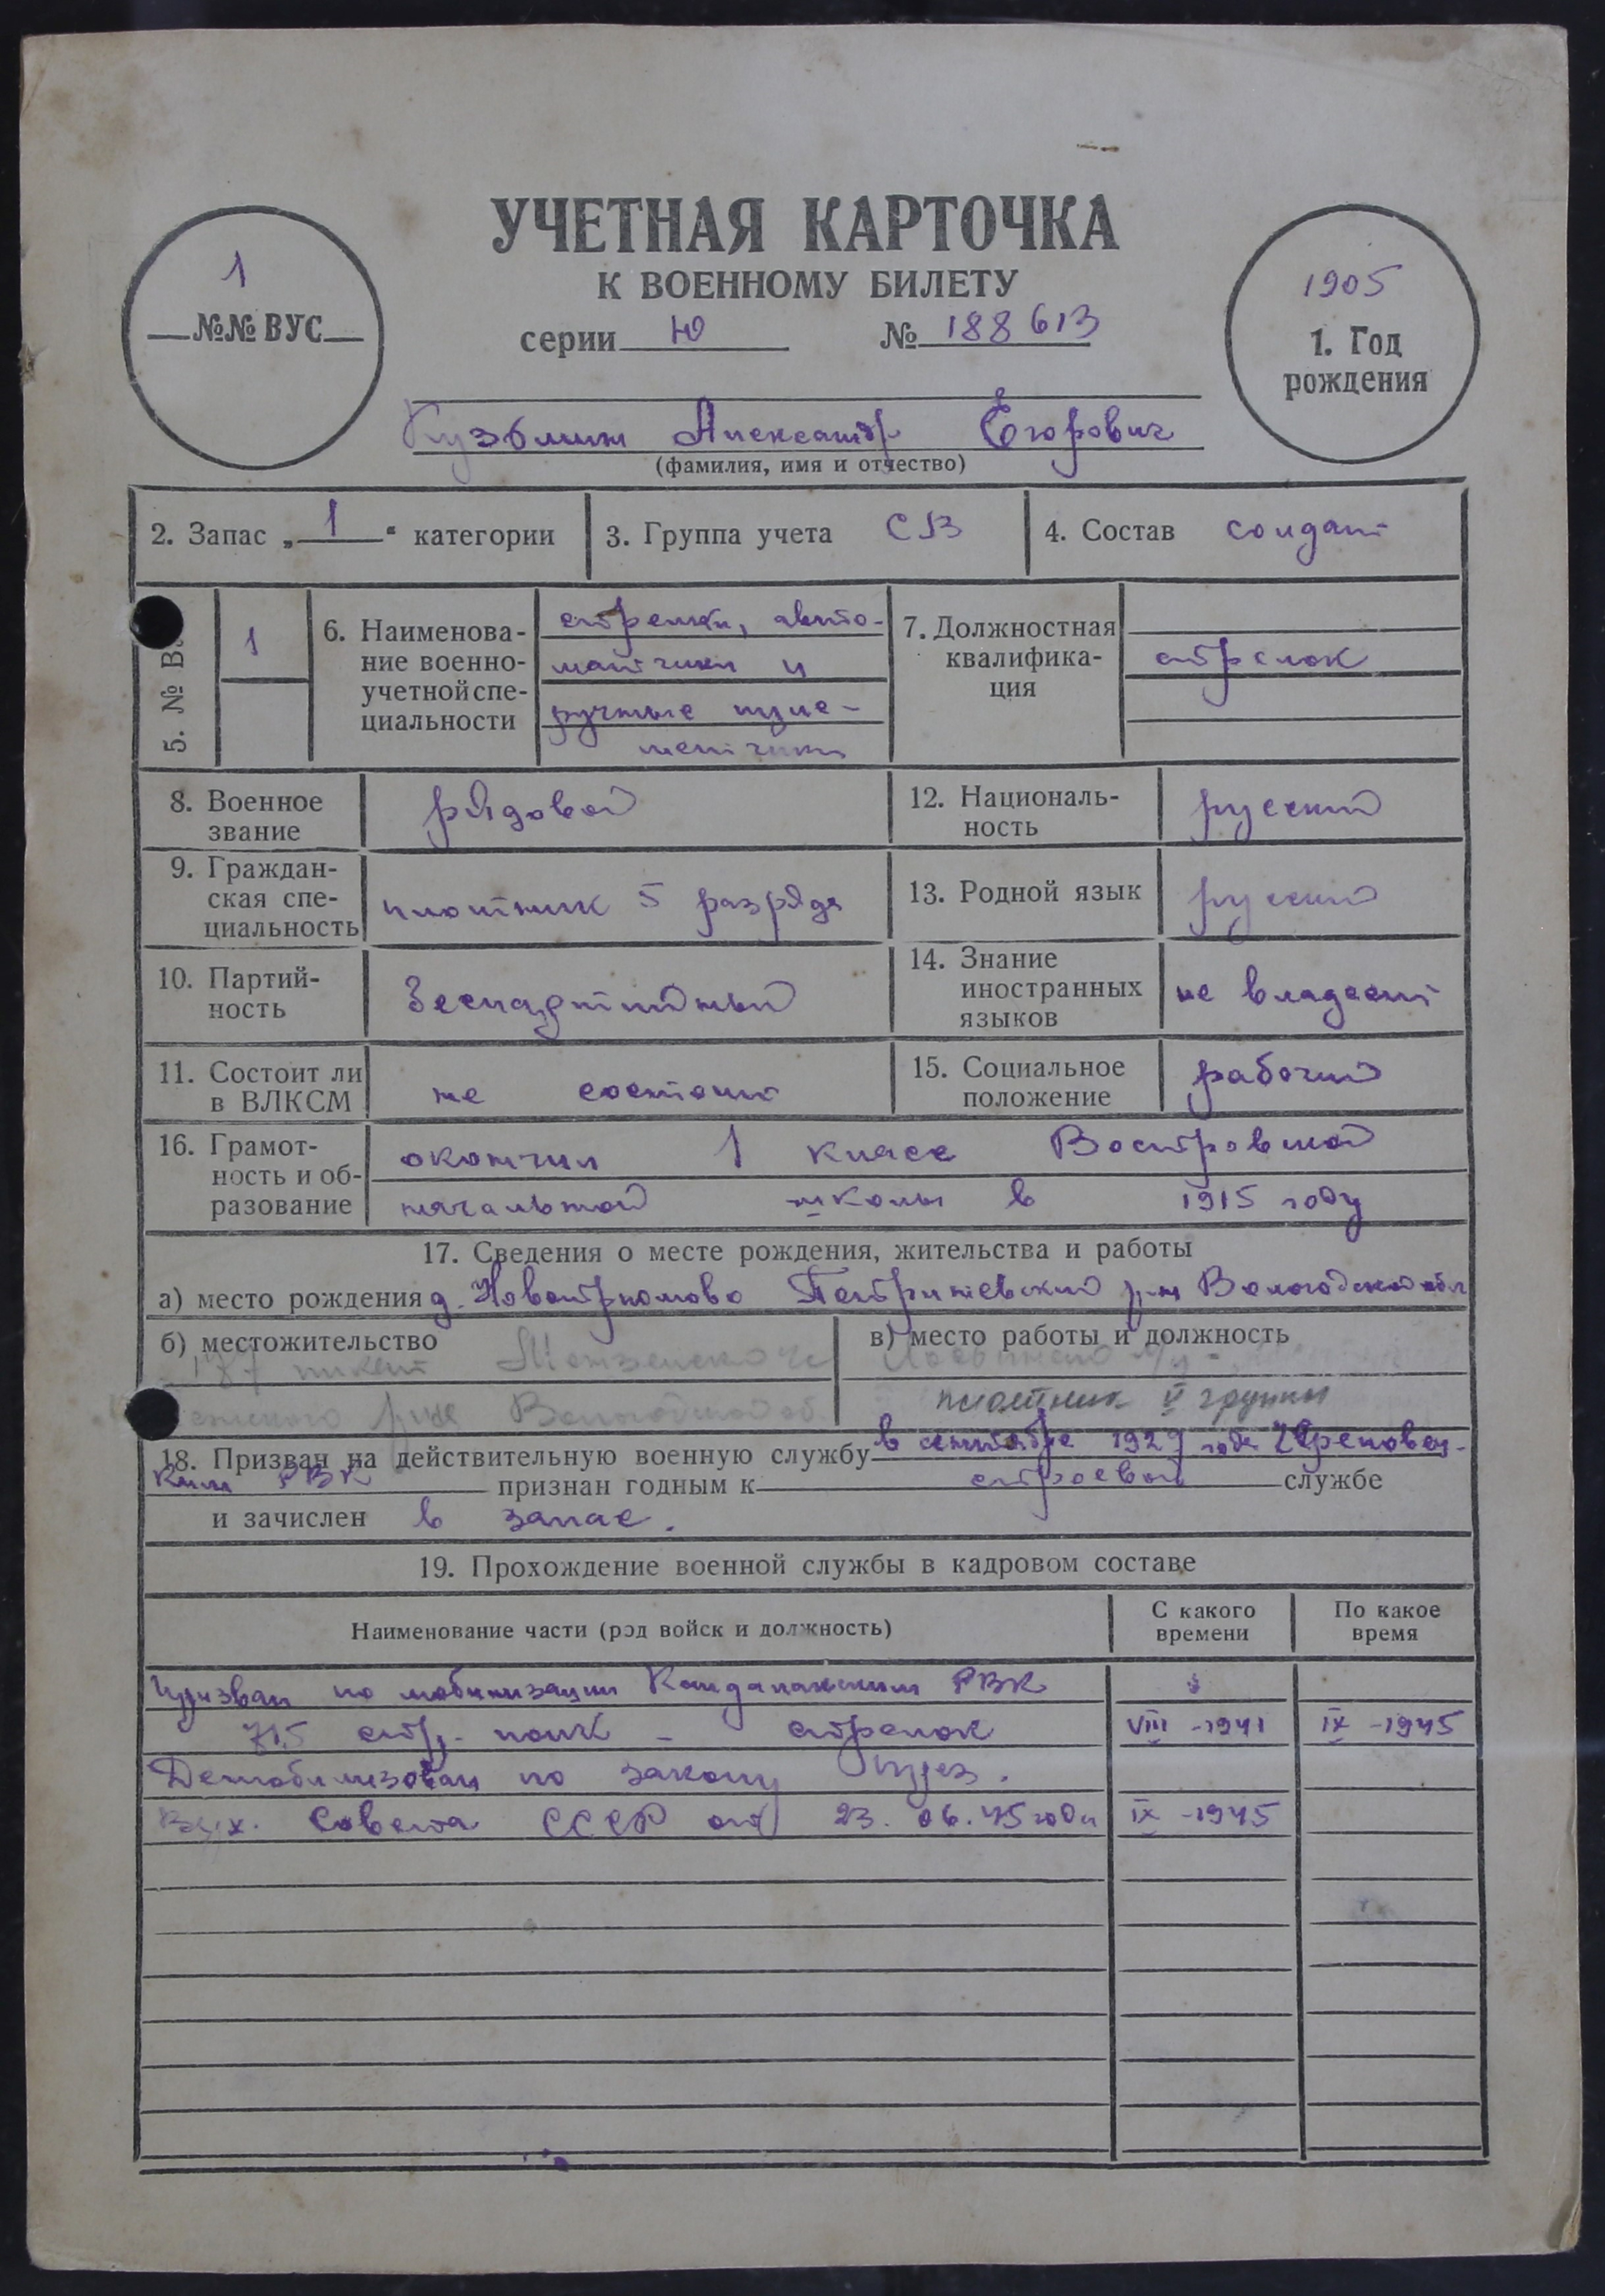 УЧЕТНАЯ КАРТОЧКА
К ВОЕННОМУ БИЛЕТУ
серии Ю № 188613
1
№№ ВУС
1905
1. Год
рождения
Кузьмин Александр Егорович
(фамилия, имя и отчество)
2. Запас „1“ категории
3. Группа учета СВ
4. Состав солдат
5. № В
1
6. Наименова-
ние военно-
учетной спе-
циальности
стрелки, авто-
матчики и
ручные пуле-
метчики
7. Должностная
квалифика-
ция
стрелок
8. Военное
звание
рядовой
12. Националь-
ность
русский
9. Граждан-
ская спе-
циальность
плотник 5 разряда
13. Родной язык
русский
10. Партий-
ность
беспартийный
14. Знание
иностранных
языков
не владеет
11. Состоит ли
в ВЛКСМ
не состоит
15. Социальное
положение
рабочий
16. Грамот-
ность и об-
разование
окончил 1 класс Востровской
начальной школы в 1915 году
17. Сведения о месте рождения, жительства и работы
а) место рождения д. Петриневский р-н Вологодской обл
б) местожительство
187 пикет
р-на Вологодской об.
в) место работы и должность
плотник V группы
18. Призван на действительную военную службу в сентябре 1929 года Череповец-
ким РВК признан годным к строевой службе
и зачислен в запас.
19. Прохождение военной службы в кадровом составе
Наименование части (род войск и должность)
С какого
времени
По какое
время
Призван по мобилизации Кандалакским РВК
715 стр. полк – стрелок VIII -1941 IX -1945
Демобилизован по закону През.
Верх. Совета СССР от 23.06.45 года IX -1945